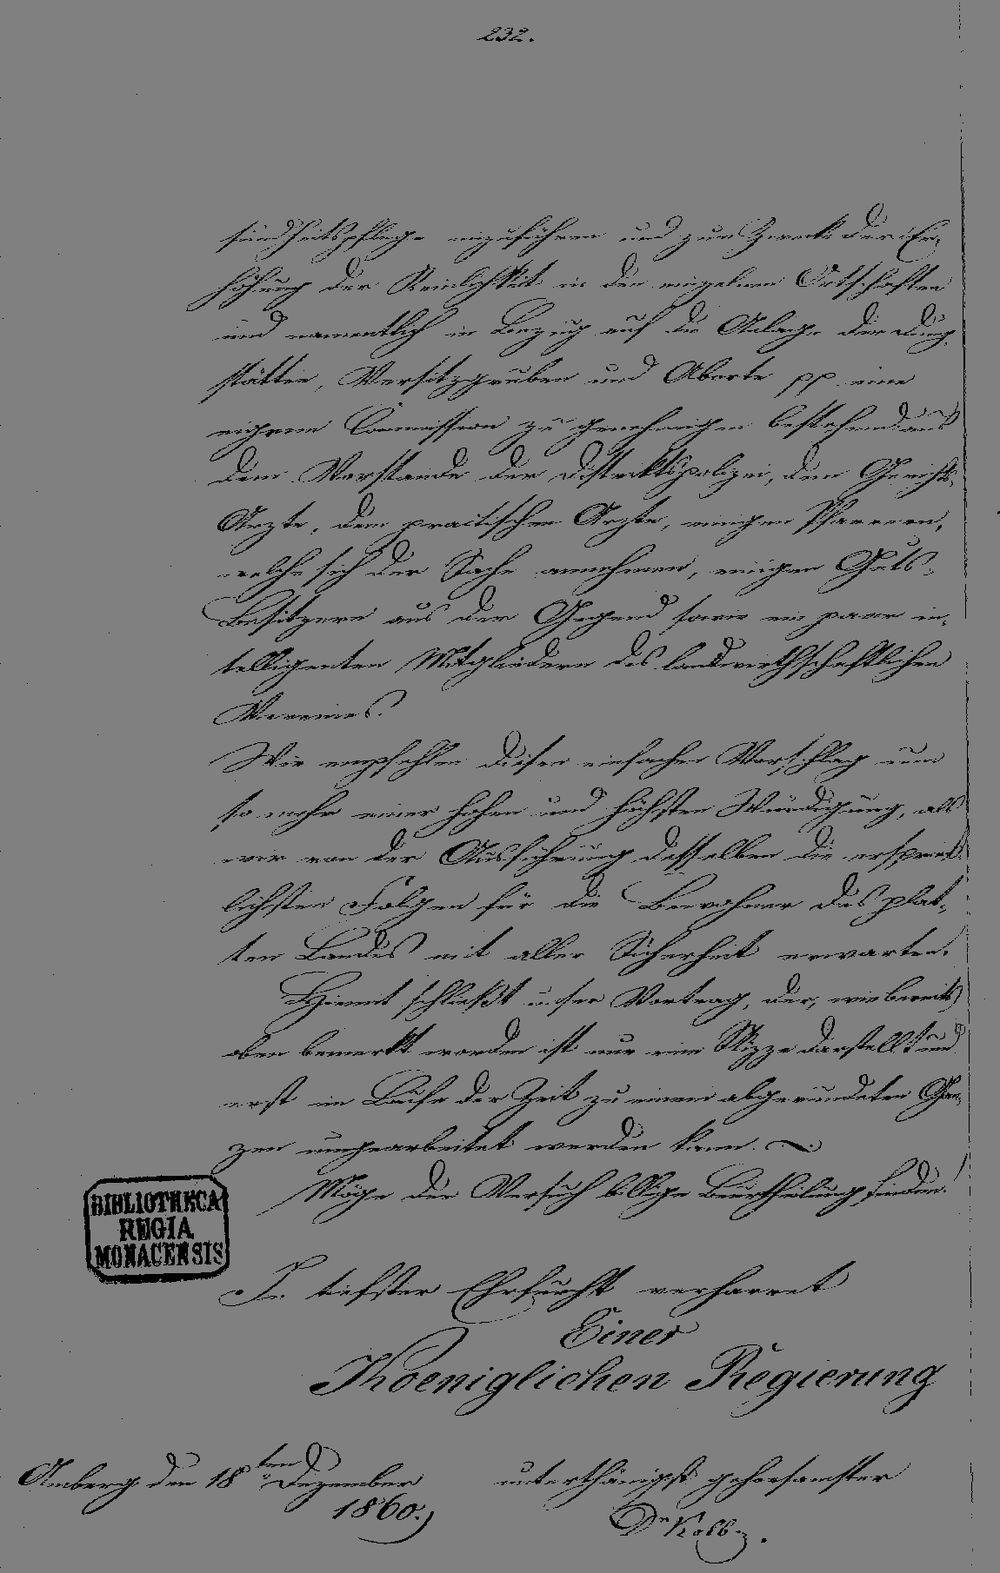 232.
sundheitspflege einzuführen und zum Zwecke der Er-
höhung der Reinlichkeit in den einzelnen Ortschaften
und namentlich in Bezug auf die Anlage der Dung-
stätten, Versitzgruben und Aborte pp. eine
eigene Commission zu genehmigen bestehend aus
dem Vorstande der Distriktspolizei, dem Gerichts-
Arzte, dem practischen Arzte, einigen Pfarrern,
welche sich der Sache annehmen, einigen Guts-
Besitzern aus der Gegend sowie ein paar in-
telligenten Mitgliedern des landwirthschaftlichen
Vereines.
Wir empfehlen diesen einfachen Vorschlag um
so mehr einer hohen und höchsten Würdigung, als
wir von der Ausführung desselben die ersprieß-
lichsten Folgen für die Bewohner des plat-
ten Landes mit aller Sicherheit erwarten.
Hiemit schließt unser Vortrag, der, wie bereits
oben bemerkt worden ist nur eine Skizze darstellt und
erst im Laufe der Zeit zu einem abgerundeten Gan-
zen umgearbeitet werden kann.
Möge der Versuch billige Beurtheilung finden!
BIBLIOTHECA
REGIA
MONACENSIS
In tiefster Ehrfurcht verharret
Einer
Koeniglichen Regierung
Amberg den 18ten Dezember
1860.
unterthänigst gehorsamster
Dr Kolb